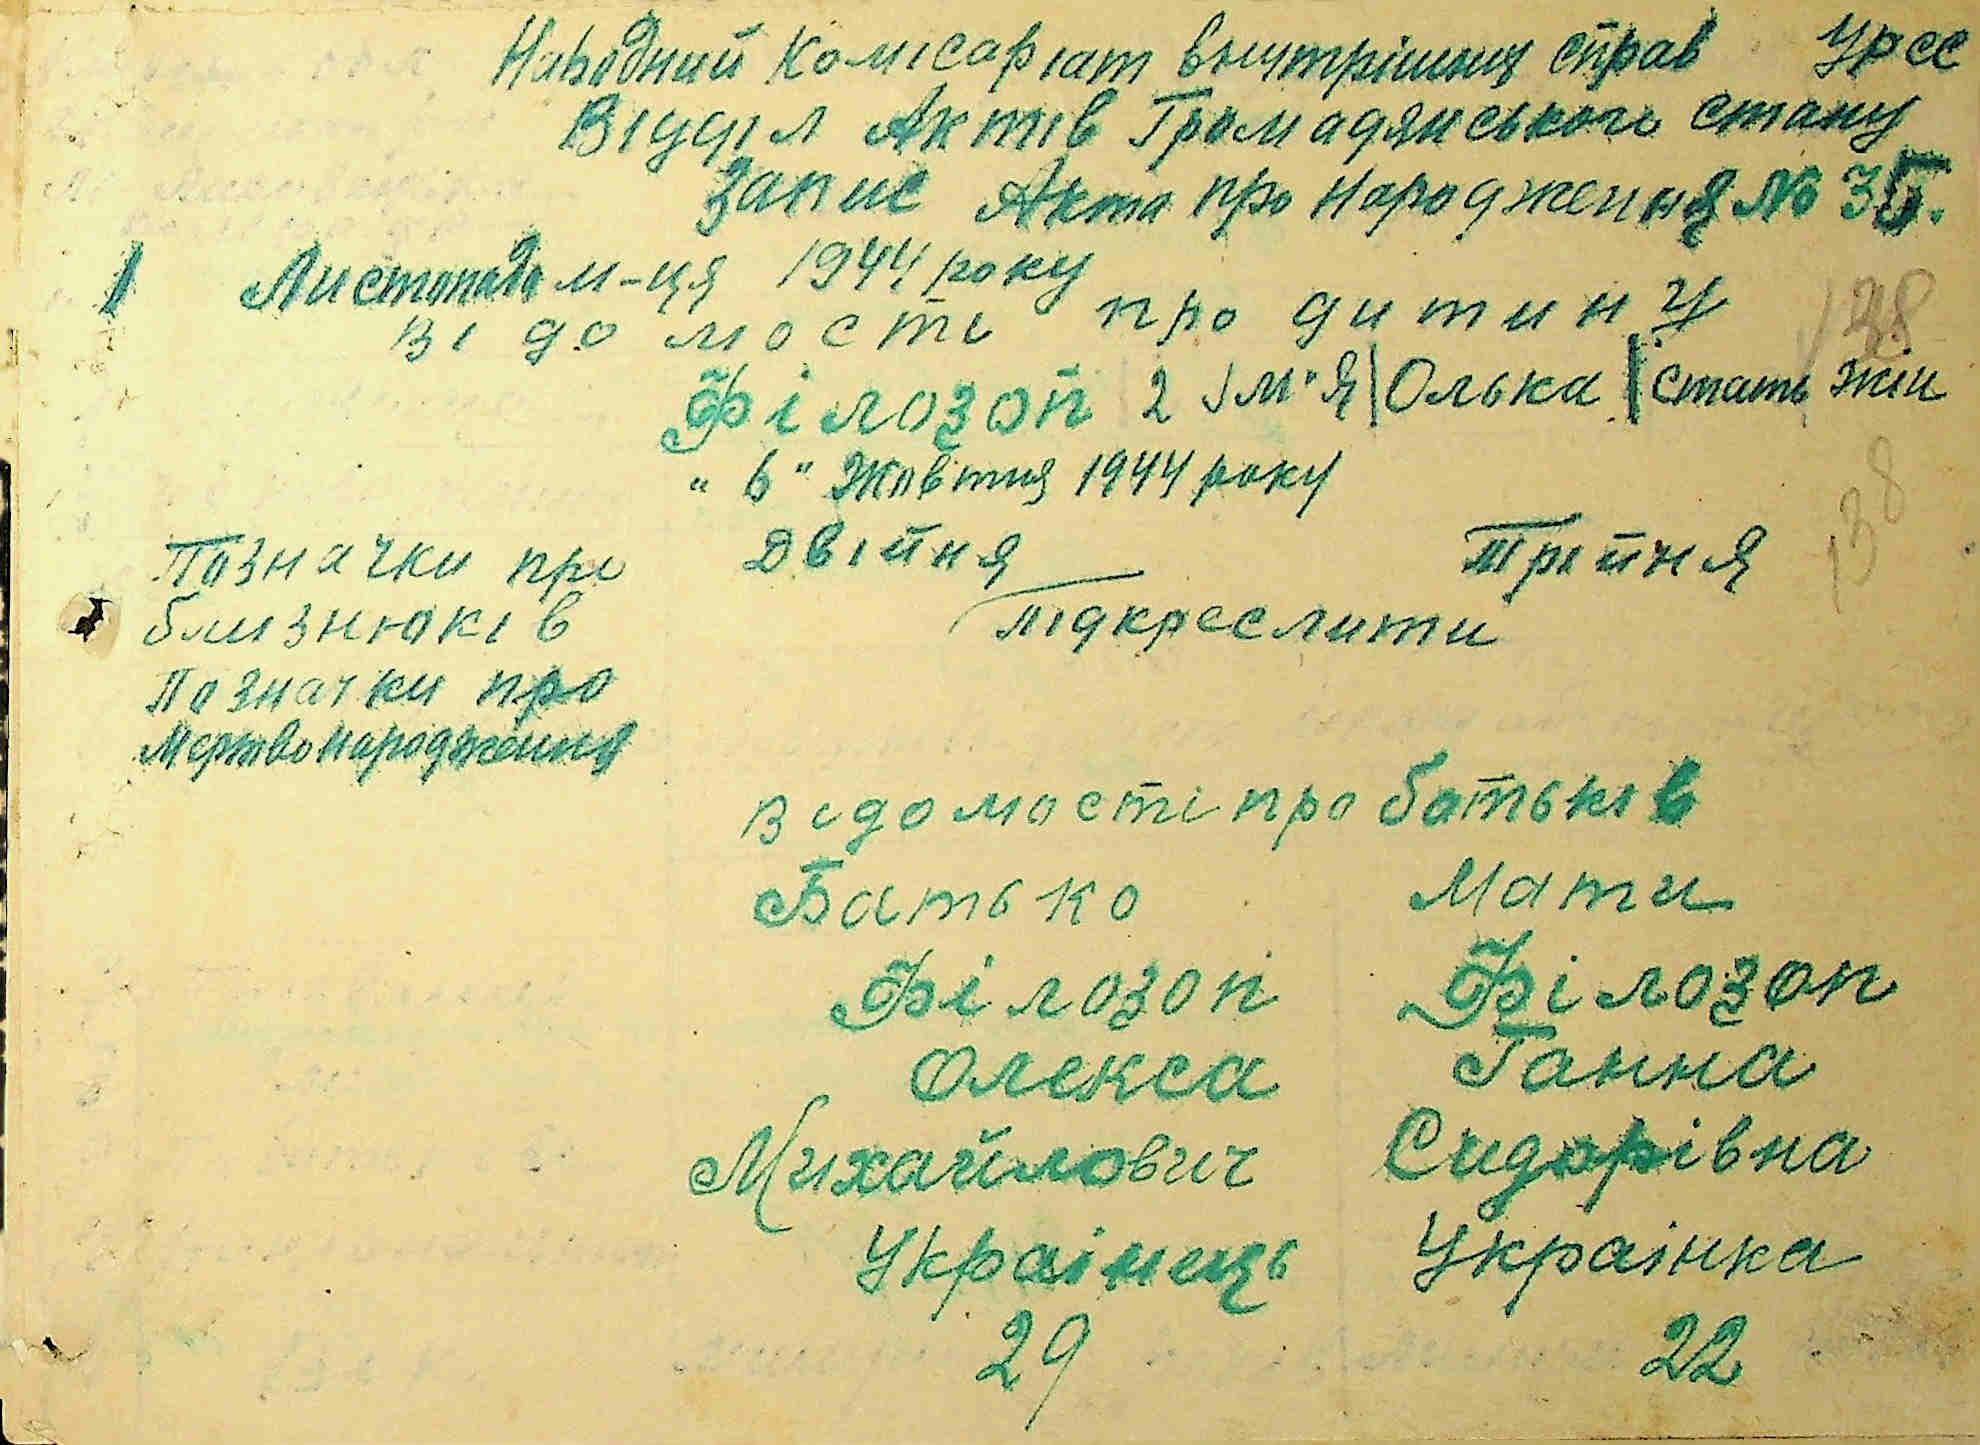 Народний Комісаріат внутрішних справ УРСС
Відділ Актів Громадянського стану
Запис Акта про народження № 35.
1 Листопада м-ця 1944 року
Відомость про дитину
138
Філозоп 2 Ім'я | Олька | стать жін
" 6 " Жовтня 1944 року
138
Позначки про Двійня Трійня
близнюків підкреслити
Позначки про
Мертвонародження
Відомості про батьків
Батько Мати
Філозоп Філозоп
Олекса Ганна
Михайлович Сидорівна
Украінець Украінка
29 22